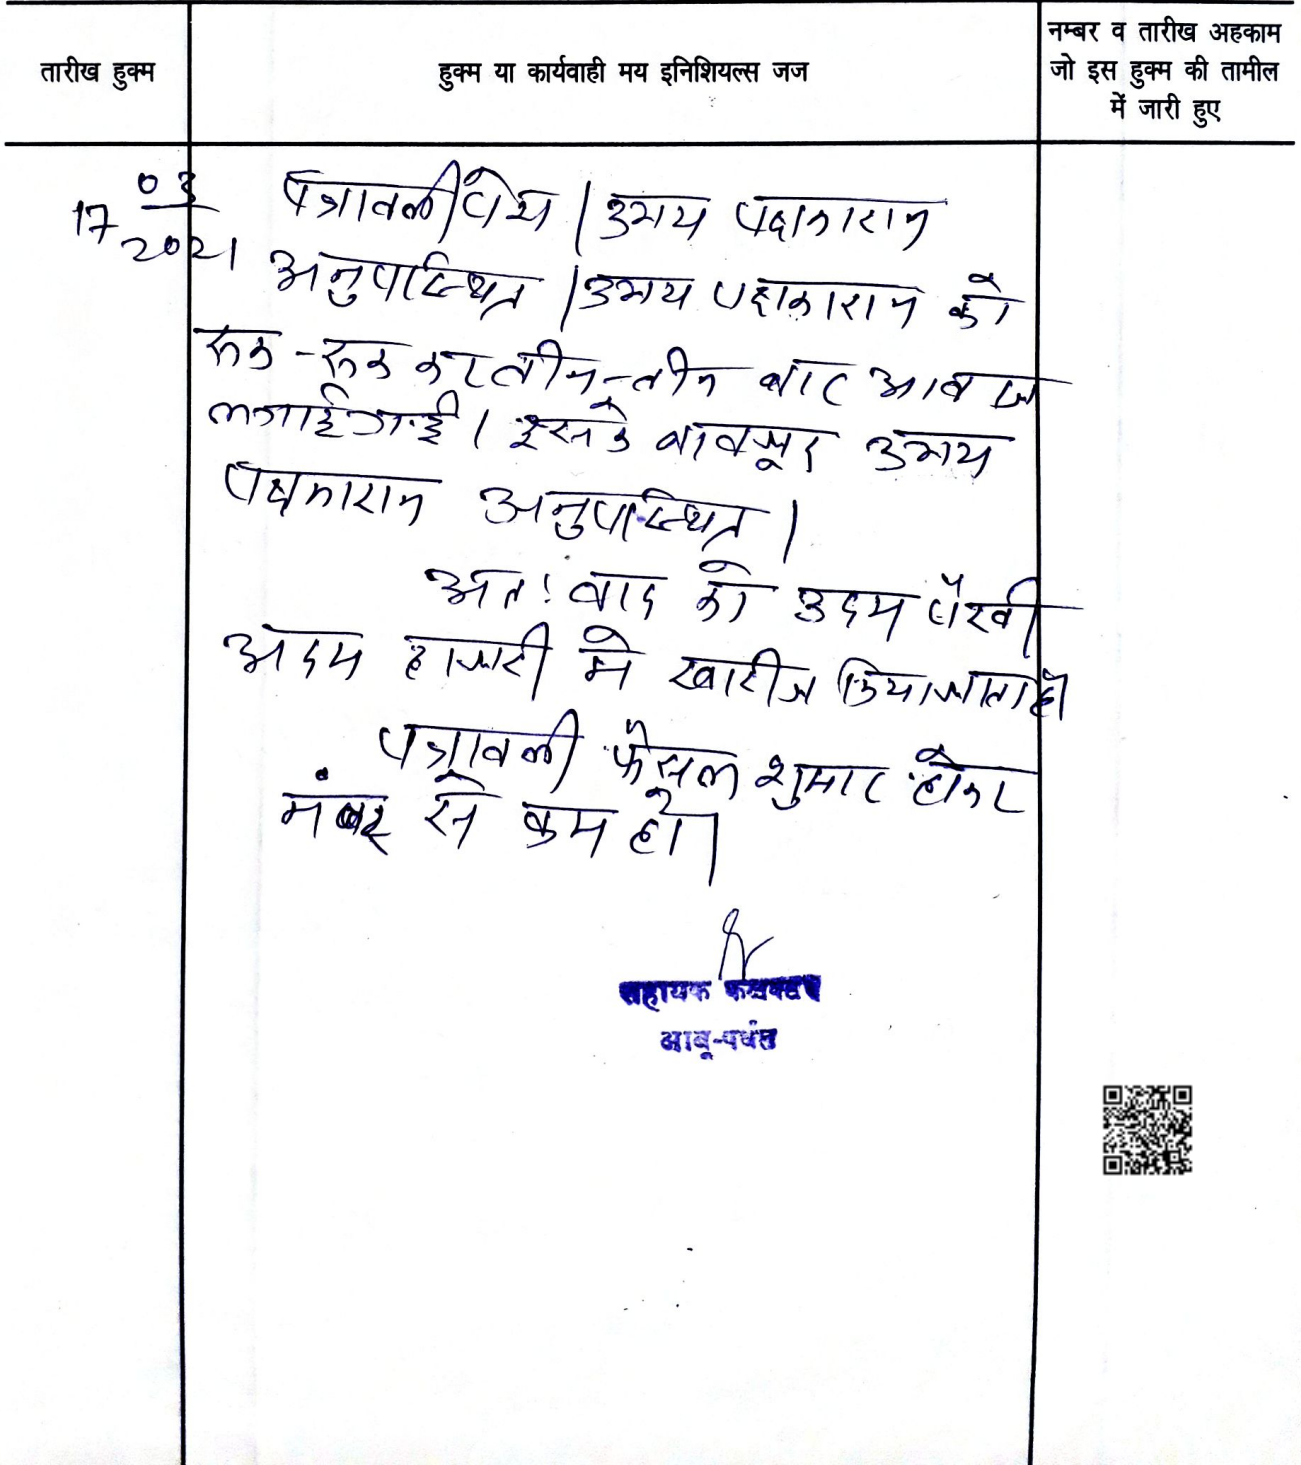 तारीख हुक्म
हुक्म या कार्यवाही मय इनिशियल्स जज
नम्बर व तारीख अहकाम
जो इस हुक्म की तामील
में जारी हुए
17 03
2021
पत्रावली पेश। उभय पक्षकारान
अनुपस्थित। उभय पक्षकारान को
रूक-रूक कर तीन-तीन बार आवाज
लगाई गई। इसके बावजूद उभय
पक्षकारान अनुपस्थित।
अतः वाद को अदम पैरवी
अदम हाजरी मे खारीज किया जाता है
पत्रावली फैसल शुमार होकर
नंबर से कम हो।
सहायक कलक्टर
आबू-पर्वत